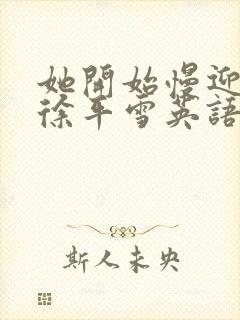 她開始慢迎
徐平雪英語
斯人未央